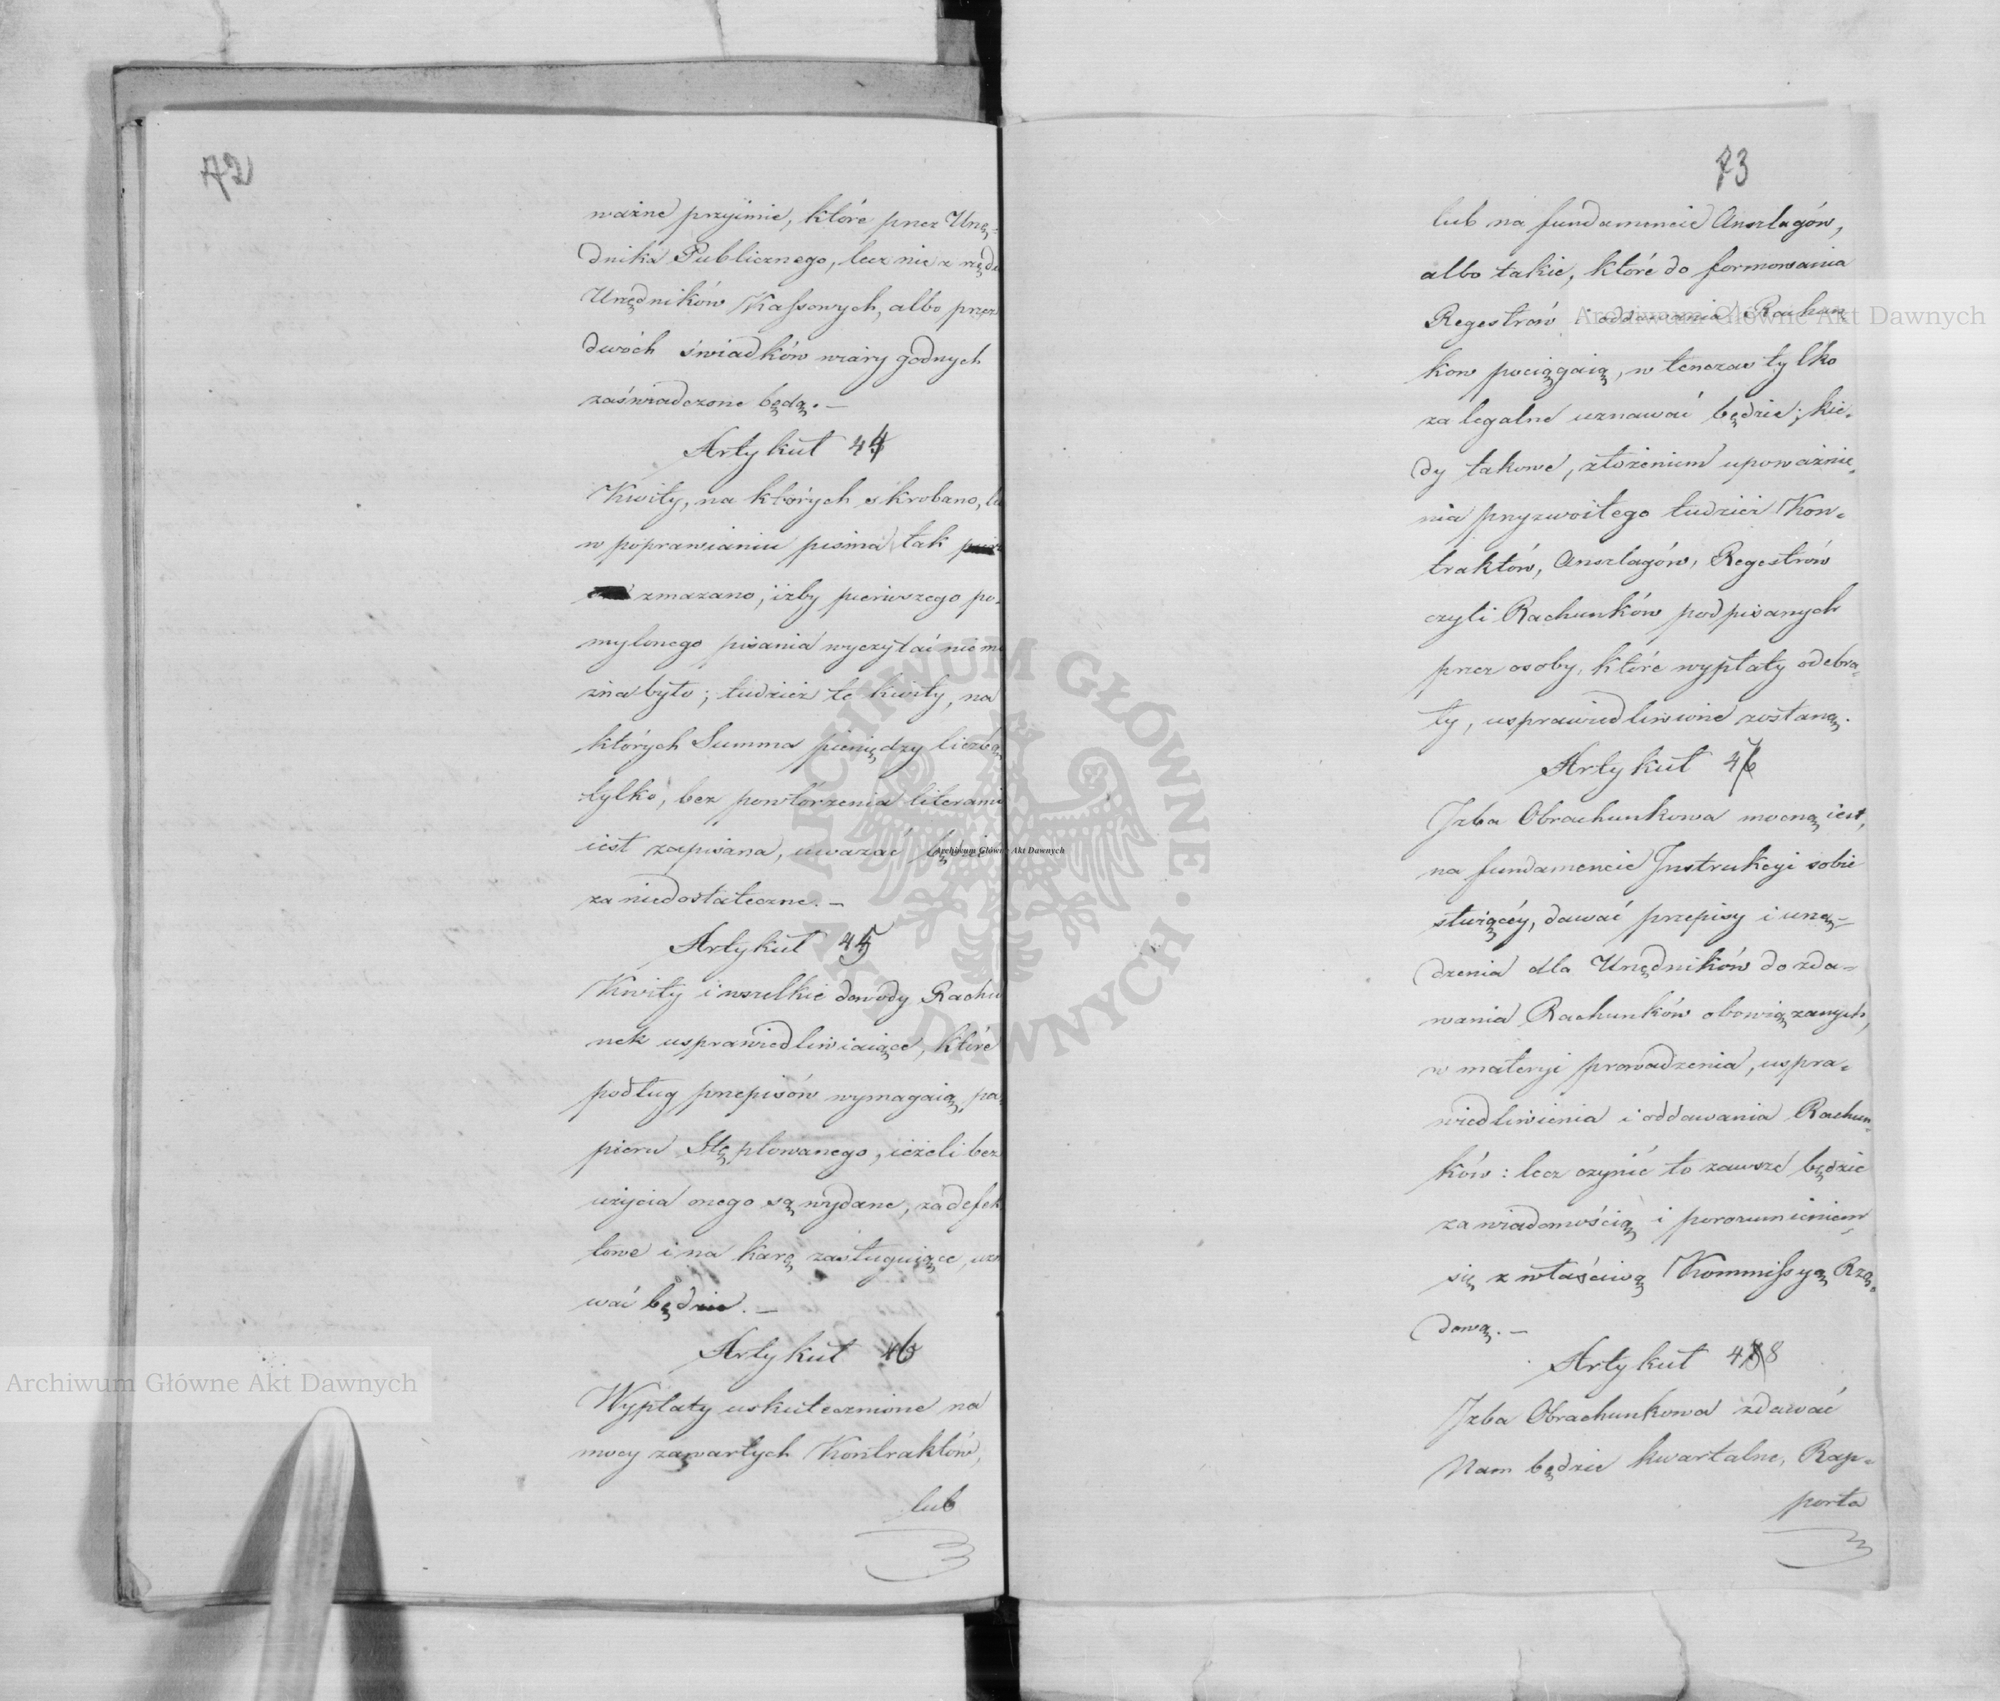 72
ważne przyimie, które przez Urzę-
dnika Publicznego, lecz nie z rzędu
Urzędników Kassowych, albo przez
dwóch świadków wiary godnych
zaświadczone będą. —
Artykuł 44
Kwity, na których skrobano, lu
w poprawianiu pisma tak
zmazano, iżby pierwszego po-
mylonego pisania wyczytać nie mo
żna było; tudzież te kwity, na
których Summa pieniędzy liczbą
tylko, bez powtórzenia literami
iest zapisana, uważać będzie
za niedostateczne. —
Artykuł 45
Kwity i wszelkie dowody Rachu
nek usprawiedliwiaiące, które
podług przepisów wymagaią pa-
pieru Stęplowanego, ieżeli bez
użycia onego są wydane, za defek
towe i na karę zasługuiące, uzn
wać będzie. —
Artykuł 46
Wypłaty uskutecznione na
mocy zawartych Kontraktów,
lub
73
lub na fundamencie Anszlagów,
albo takie, które do formowania
Regestrów i oddawania Rachun
kow pociągaią, w tenczas tylko
za legalne uznawać będzie; kie-
dy takowe, złożeniem upoważnie-
nia przyzwoitego tudzież Kon-
traktów, Anszlagów, Regestrów
czyli Rachunków podpisanych
przez osoby, które wypłaty odebra-
ły, usprawiedliwione zostaną.
Artykuł 47
Izba Obrachunkowa mocną iest,
na fundamencie Instrukcyi sobie
służącéy, dawać przepisy i urzą-
dzenia dla Urzędników do zda-
wania Rachunków obowiązanych,
w materyi prowadzenia, uspra-
wiedliwienia i oddawania Rachun-
ków: lecz czynić to zawsze będzie
za wiadomością i porozumieniem
się z właściwą Kommissyą Rzą-
dową. —
Artykuł 48
Izba Obrachunkowa zdawać
Nam będzie kwartalne, Rap-
porta
Archiwum Główne Akt Dawnych
Archiwum Główne Akt Dawnych
Archiwum Główne Akt Dawnych
ARCHIWUM GŁÓWNE · AKT DAWNYCH ·